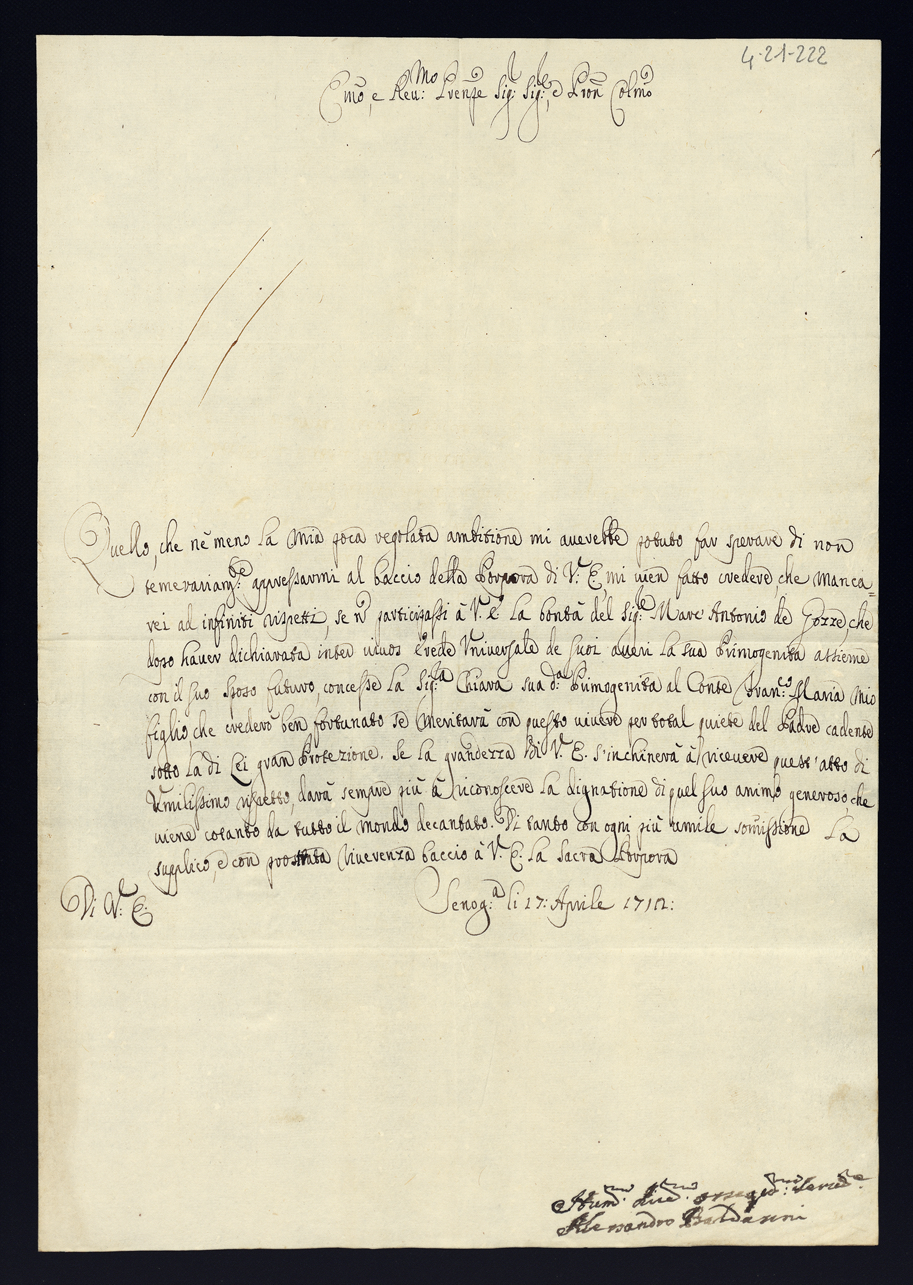 4-21-222
Emō, e Reu:mo Prenpe Sig:r Sig:re, e Pron Colmo
Quello, che nè meno la mia poca regolata ambitione mi auerebbe potuto far sperare di non
temerariam:te appressarmi al baccio della Porpora di V: E, mi uien fatto credere, che manca=
rei ad infiniti rispetti, se nō participassi à V: E: la bontà del Sig:re Marc' Antonio de Gozze, che
dopo hauer dichiarata inter uiuos Erede Vniuersale de suoi aueri la sua Primogenita assieme
con il suo sposo futuro, concesse la Sig:ra Chiara sua d:a Primogenita al Conte Fran:co Maria mio
figlio, che crederà ben fortunato se meritarà con questo uiuere per total quiete del Padre cadente
sotto la di Lei gran Protezione. Se la grandezza di V: E. s'inchinerà à riceuere quest'atto di
Umilissimo rispetto, darà sempre più à riconoscere la dignatione di quel suo animo generoso, che
uiene cotanto da tutto il mondo decantato. Di tanto con ogni più umile somissione la
supplico, e con prostrata riuerenza baccio à V: E. la Sacra Porpora
Di V: E:
Senog:a li 17: Aprile 1712:
Hum:mo diu:mo osseq:mo Seru:re
Alessandro Baldassini